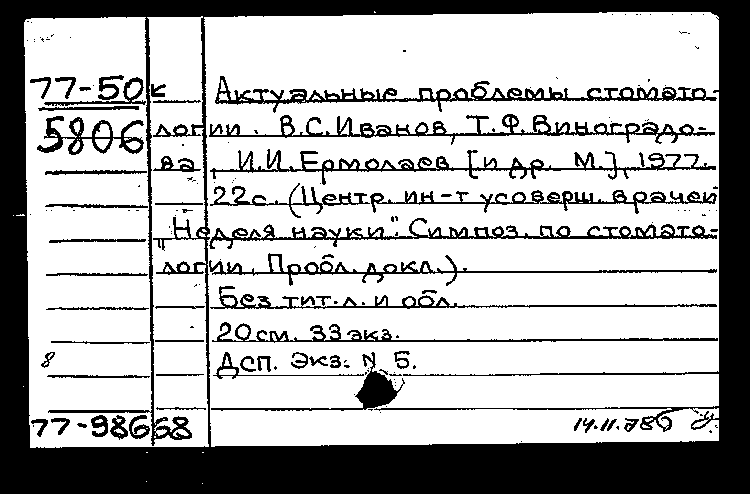 77-50к Актуальные проблемы стомато-
5806 логии. В.С.Иванов, Т.Ф.Виноградо-
ва, И.И.Ермолаев [и др. М.], 1977.
22с. (Центр. ин-т усоверш. врачей
„Неделя науки". Симпоз. по стомато-
логии. Пробл. докл.).
Без тит. л. и обл.
20см. 33экз.
8 Дсп. Экз. N 5.
77-98668 14.11.78